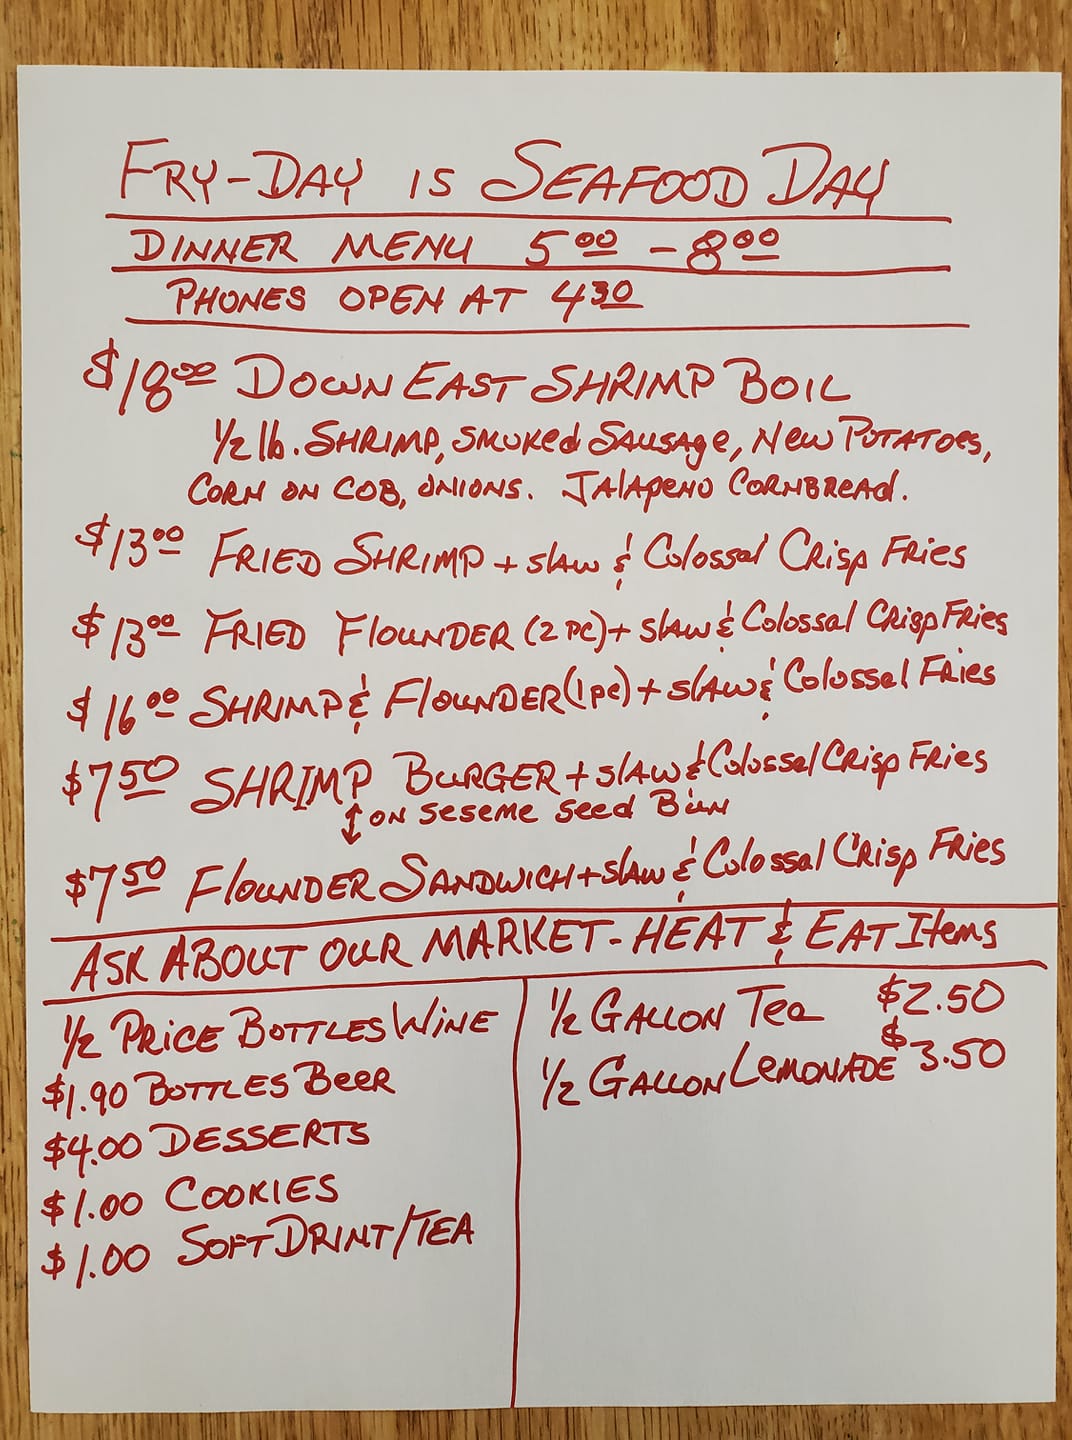 FRY-DAY IS SEAFOOD DAY
DINNER MENU 5⁰⁰ - 8⁰⁰
PHONES OPEN AT 4³⁰
$18⁰⁰ DOWN EAST SHRIMP BOIL
1/2 lb. SHRIMP, SMOKED SAUSAGE, NEW POTATOES,
CORN ON COB, ONIONS. JALAPENO CORNBREAD.
$13⁰⁰ FRIED SHRIMP + slaw & Colossal Crisp Fries
$13⁰⁰ FRIED FLOUNDER (2 PC) + slaw & Colossal Crisp Fries
$16⁰⁰ SHRIMP & FLOUNDER (1 PC) + slaw & Colossal Fries
$7⁵⁰ SHRIMP BURGER + slaw & Colossal Crisp Fries
↕ ON SESEME SEED BUN
$7⁵⁰ FLOUNDER SANDWICH + slaw & Colossal Crisp Fries
ASK ABOUT OUR MARKET - HEAT & EAT Items
1/2 PRICE BOTTLES WINE
$1.90 BOTTLES BEER
$4.00 DESSERTS
$1.00 COOKIES
$1.00 SOFT DRINT/TEA
1/2 GALLON TEA $2.50
1/2 GALLON LEMONADE $3.50